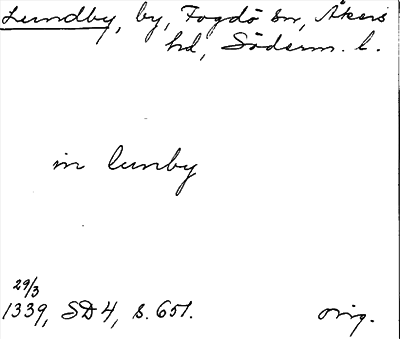 Lundby, by, Fogdö sn, Åkers
hd, Söderm. l.
in lunby
29/3
1339, SD 4, s. 651. orig.